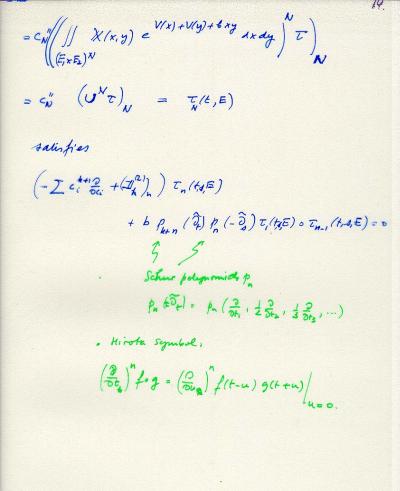 14.
= c_N'' ((∬_{(E_1×E_2)^N} X(x,y) e^{V(x)+V(y)+bxy} dx dy)^N τ)_N
= c_N'' (U^N τ)_N = τ_N(t,E)
satisfies
(-∑ c_i^{k+1} ∂/∂c_i + (J_k^{(2)})_n) τ_n(t,s,E)
+ b p_{k+n} (∂̃_t) p_n (-∂̃_s) τ_1(t,s,E) ∘ τ_{n-1}(t,s,E) = 0
Schur polynomials p_n
p_n(±∂̃_t) = p_n (∂/∂t_1, 1/2 ∂/∂t_2, 1/3 ∂/∂t_3, ...)
• Hirota symbol,
(∂/∂t_k)^n f∘g = (∂/∂u_k)^n f(t-u) g(t+u)|_{u=0}.